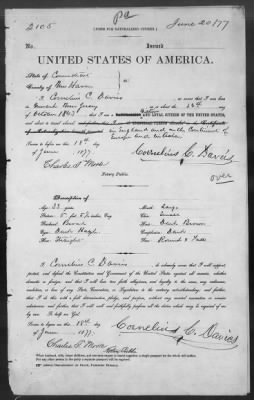 2105
pa
June 20/77
[FORM FOR NATURALIZED CITIZEN.]
No.
Issued
UNITED STATES OF AMERICA.
State of Connecticut
County of New Haven
I, Cornelius C. Davis, do swear that I was born
in New Jersey, on or about the 16th day
of October 1843; that I am a Native AND LOYAL CITIZEN OF THE UNITED STATES,
and about to travel
in England and on the Continent of
Europe
Sworn to before me, this 18th day
of June 1877.
Cornelius C. Davis
Charles T. Morse
Notary Public.
over
Description of
Age: 33 years
Stature: 5 feet inches, Eng.
Forehead: Broad
Eyes: Dark Hazel
Nose: Straight
Mouth: Large
Chin: Small
Hair: Dark Brown
Complexion: Dark
Face: Round & Full
I, Cornelius C. Davis, do solemnly swear that I will support,
protect, and defend the Constitution and Government of the United States against all enemies, whether
domestic or foreign; and that I will bear true faith, allegiance, and loyalty to the same, any ordinance,
resolution, or law of any State, Convention, or Legislature to the contrary notwithstanding; and further,
that I do this with a full determination, pledge, and purpose, without any mental reservation or evasion
whatsoever; and further, that I will well and faithfully perform all the duties which may be required of me
by law. So help me God.
Sworn to before me, this 18th day
of June 1877.
Cornelius C. Davis
Charles T. Morse
Notary Public